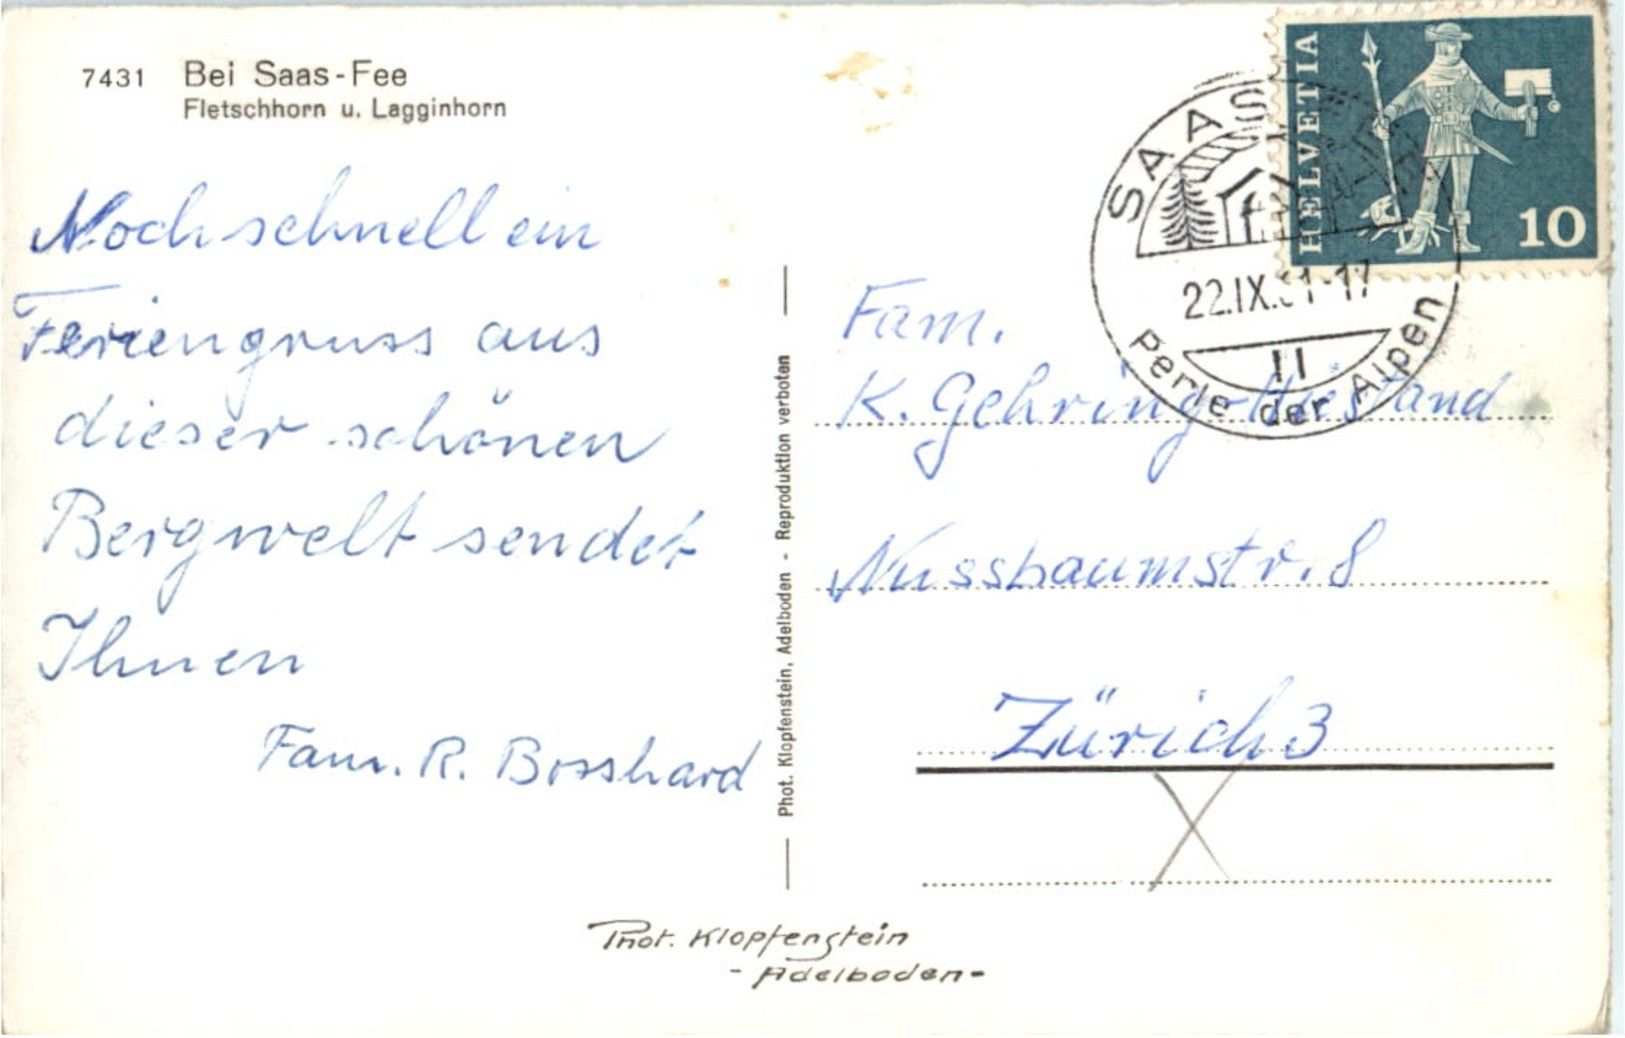 7431 Bei Saas-Fee
Fletschhorn u. Lagginhorn
Noch schnell ein
Feriengruss aus
dieser schönen
Bergwelt sendet
Ihnen
Fam. R. Bosshard
Phot. Klopfenstein, Adelboden - Reproduktion verboten
HELVETIA
10
SAAS
22.IX.61-17
Perle der Alpen
Fam.
K. Gehring-Hiestand
Nussbaumstr. 8
Zürich 3
Phot. Klopfenstein
- Adelboden -